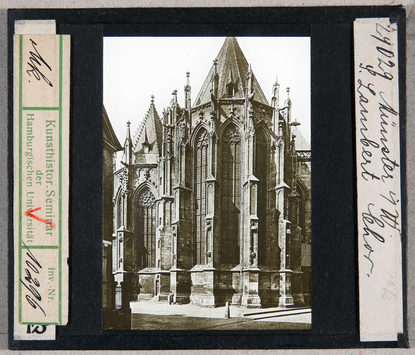 Mk.
Kunsthistor. Seminar
der
Hamburgischen Universität
Inv.-Nr.
12
29029 Münster i/W
S. Lambert Chor.